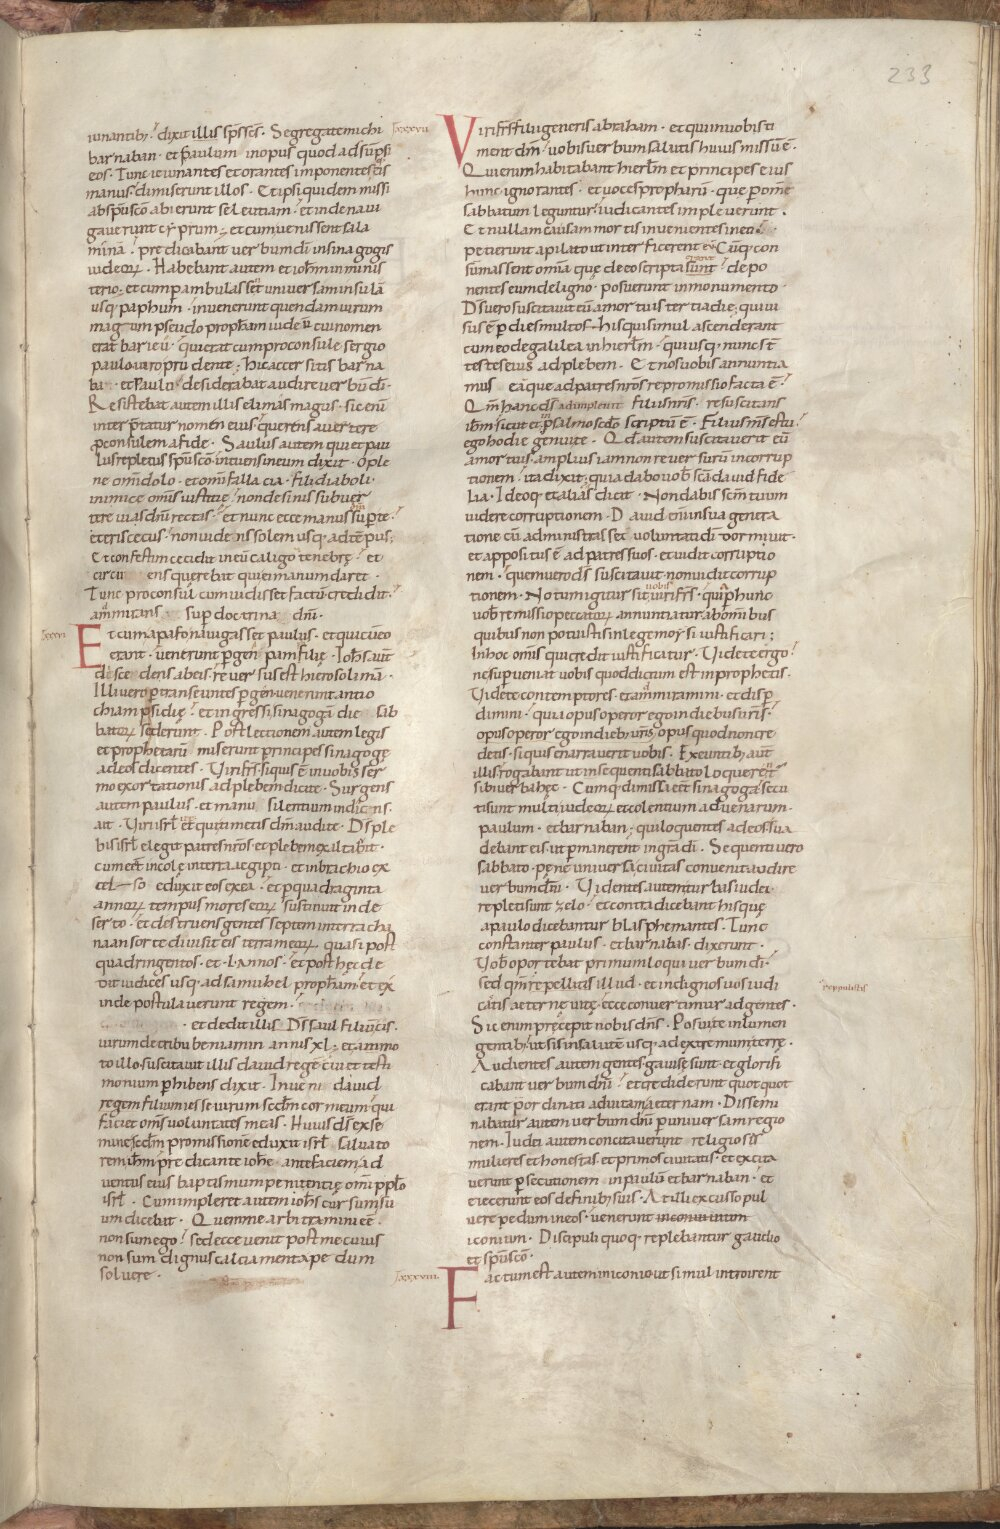 233
iunantib; dixit illis sp̄s sc̄s. Segregate michi
barnaban. et paulum in opus quod adsūpsi
eos. Tunc ieiunantes et orantes imponentes eis
manus dimiserunt illos. Et ipsi quidem missi
ab sp̄u sc̄o abierunt seleutiam. et inde naui
gauerunt cyprum. et cum uenissent sala
mina. predicabant uerbum dī in sinagogis
iudeoꝝ. Habebant autem et ioh̄m in minis
terio. et cum perambulasset uniuersam insulā
usq; paphum. inuenerunt quendam uirum
magum pseudo proph̄am iudeū cui nomen
erat barieu. qui erat cum proconsule sergio
paulo uiro prudente. Hic accersitis barna
ba et paulo. desiderabat audire uerbū dī.
Resistebat autem illis elimas magus. sic enī
interp̄tatur nomen eius. querens auertere
ꝓconsulem a fide. Saulus autem qui et pau
lus repletus sp̄u sc̄o. intuens in eum dixit. O ple
ne om̄i dolo. et om̄i fallacia. fili diaboli
inimice om̄is iustitię. non desinis subuer
tere uias dn̄i rectas. et nunc ecce manus dn̄i sup te.
et eris cecus. non uidens solem usq; ad tēpus.
Et confestim cecidit in eū caligo tenebrę. et
circu ens querebat qui ei manum daret.
Tunc proconsul cum uidisset factū credidit.
ammirans sup doctrina dn̄i.
lxxxvi
Et cum a pafo nauigasset paulus. et qui cū eo
erant. uenerunt pergen pamfilię. Ioh̄s aūt
discedens ab eis. reuersus est hierosolima.
Illi uero ꝑtranseuntes pergen uenerunt antio
chiam psidię. et ingressi sinagogā die sab
batoꝝ sederunt. Post lectionem autem legis
et prophetarū miserunt principes sinagogę
ad eos dicentes. Viri fr̄s. si quis ē in uobis ser
mo exortationis ad plebem dicite. Surgens
autem paulus. et manu silentium indicens.
ait. Viri isrl̄ et qui timetis dm̄ audite. Ds̄ ple
bis isrl̄ elegit patres nr̄os. et plebem exaltauit.
cum eēnt incolę in terra ęgipti. et in brachio ex
celso eduxit eos ex ea. et ꝑ quadraginta
annoꝝ tempus mores eoꝝ sustinuit in de
serto. et destruens gentes septem in terra cha
naan sorte diuisit eis terram eoꝝ quasi post
quadringentos. et .l. Annos. et post hęc de
dit iudices usq; ad samuhel proph̄am. et ex
inde postulauerunt regem.
et dedit illis Ds̄ saul filiū cis.
uirum de tribu beniamin annis xl. et ammo
to illo. suscitauit illis dauid regē. cui et testi
monium perhibens dixit. Inueni dauid
regem filium iesse. uirum sec̄dm cor meum. qui
faciet om̄s uoluntates meas. Huius ds̄ ex se
mine sec̄dm promissionē eduxit isrl̄ saluato
rem ih̄m. predicante ioh̄e ante faciem ad
uentus eius baptismum penitentię om̄i pplo
isrl̄. Cum impleret autem ioh̄s cursum su
um dicebat. Quem me arbitramini eē.
non sum ego. sed ecce uenit post me cuius
non sum dignus calciamenta pedum
soluere.
lxxxvii
Viri fr̄s filii generis abraham. et qui in uobis ti
ment dm̄. uobis uerbum salutis huius missū ē.
Qui enim habitabant hierlm̄ et principes eius
hunc ignorantes. et uoces propharū. que p om̄e
sabbatum leguntur. iudicantes impleuerunt.
Et nullam causam mortis inuenientes in eo.
petierunt a pilato ut interficerent eū. Cūq; con
summassent om̄ia quę de eo scripta sunt. depo
nentes eum de ligno. posuerunt in monumento
Ds̄ uero suscitauit eū a mortuis tertia die. qui ui
sus ē p dies multos. His qui simul ascenderant
cum eo de galilea in hierlm̄. qui usq; nunc st̄
testes eius ad plebem. Et nos uobis annuntia
mus eā que ad patres nr̄os repromissio facta ē.
Qm̄ hanc ds̄ adimpleuit filiis nr̄is resuscitans
ih̄m sicut et in psalmo sc̄do scriptū ē. Filius m̄s es tu.
ego hodie genui te. Qd̄ autem suscitauerit eū
a mortuis. amplius iam non reuersurū in corrup
tionem. ita dixit. quia dabo uob̄ sc̄a dauid fide
lia. Ideoq; et alias dicit. Non dabis sc̄m tuum
uidere corruptionem. Dauid enī in sua genera
tione cū administrasset uoluntati dī dormiuit.
et appositus ē ad patres suos. et uidit corruptio
nem. quem uero ds̄ suscitauit non uidit corrup
tionem. Notum igitur sit uobis uiri fr̄s. quia p hunc
uob̄ remissio peccatoꝝ annuntiatur ab om̄ibus
quibus non potuistis in lege moysi iustificari.
In hoc om̄is qui credit iustificatur. Videte ergo
ne superueniat uobis quod dictum est in prophetis.
Videte contemptores. et ammiramini. et disp̄
dimini. quia opus operor ego in diebus ur̄is.
opus operor ego in dieb; ur̄is. opus quod non cre
detis. si quis enarrauerit uobis. Exeuntib; aūt
illis rogabant ut in sequenti sabbato loquerēt
sibi uerba hęc. Cumq; dimissa eēt sinagoga. secu
ti sunt multi iudeoꝝ et colentium aduenarum.
paulum. et barnaban. qui loquentes ad eos sua
debant eis. ut permanerent in gr̄a dī. Sequenti uero
sabbato. pęne uniuersa ciuitas conuenit audire
uerbum dn̄i. Videntes autem turbas iudei.
repleti sunt zelo. et contradicebant his quę
a paulo dicebantur blasphemantes. Tunc
constanter paulus. et barnabas. dixerunt.
Uob̄ oportebat primum loqui uerbum dī.
sed qm̄ repellitis illud. et indignos uos iudi
catis aeternę uitę. ecce conuertimur ad gentes.
reppulistis
Sic enim pręcepit nobis dn̄s. Posui te in lumen
gentib; ut sis in salutē usq; ad extremum terrę.
Audientes autem gentes. gauisę sunt. et glorifi
cabant uerbum dn̄i. et crediderunt quotquot
erant p̄ordinati ad uitam aeternam. Dissemi
nabatur autem uerbum dn̄i per uniuersam regio
nem. Iudei autem concitauerunt religiosas
mulieres et honestas. et primos ciuitatis. et excita
uerunt persecutionem in paulū et barnaban. et
eiecerunt eos de finib; suis. At illi excusso pul
uere pedum in eos. uenerunt
iconium. Discipuli quoq; replebantur gaudio
et sp̄u sc̄o.
lxxxviii
Factum est autem in iconio ut simul introirent